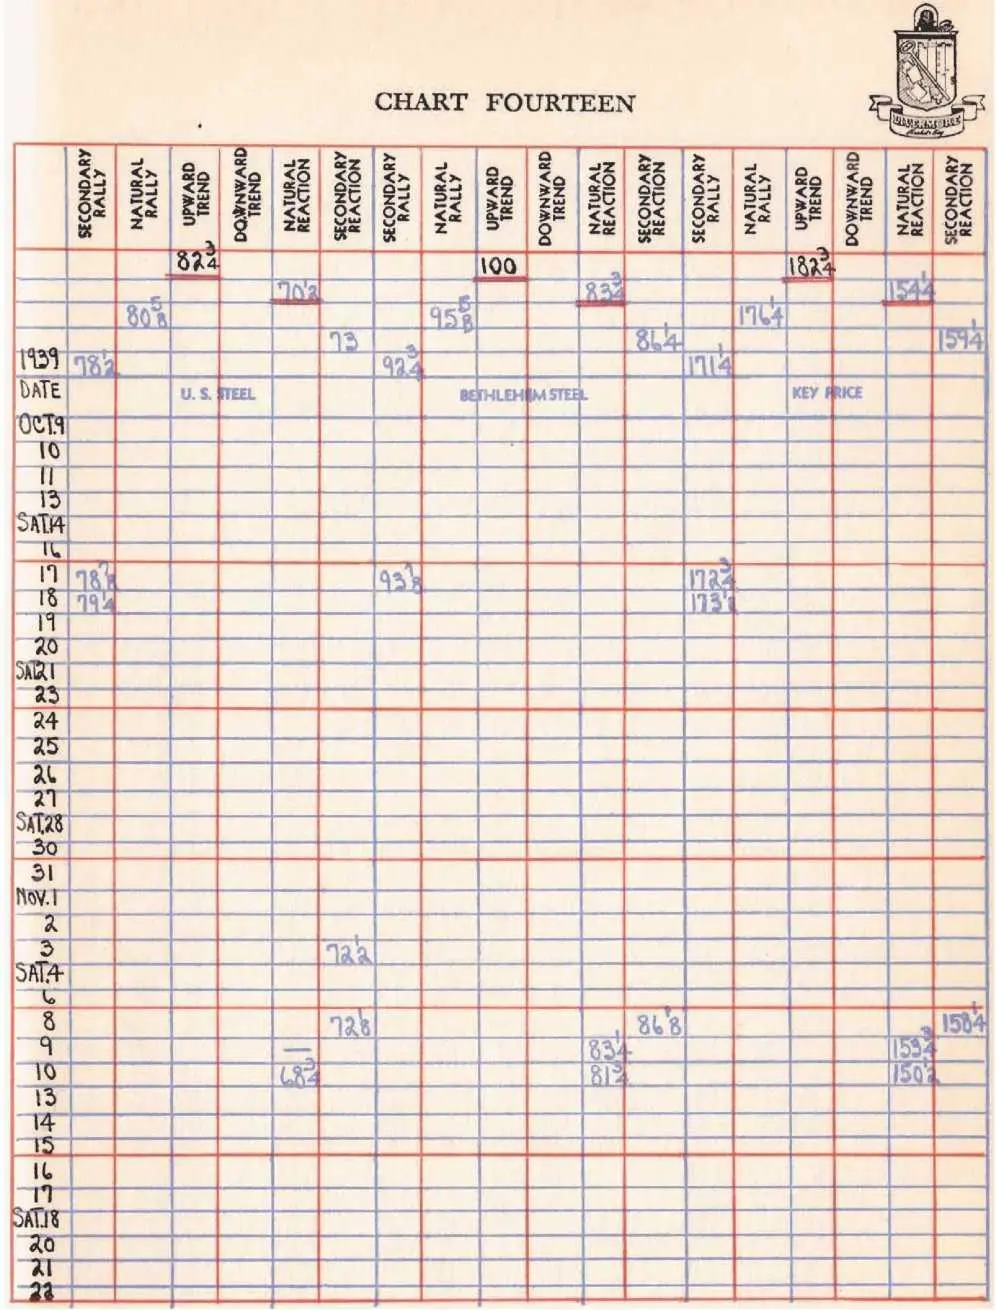 CHART FOURTEEN
LIVERMORE
Market Key
SECONDARY RALLY NATURAL RALLY UPWARD TREND DOWNWARD TREND NATURAL REACTION SECONDARY REACTION SECONDARY RALLY NATURAL RALLY UPWARD TREND DOWNWARD TREND NATURAL REACTION SECONDARY REACTION SECONDARY RALLY NATURAL RALLY UPWARD TREND DOWNWARD TREND NATURAL REACTION SECONDARY REACTION
82 3/4 100 182 3/4
70 1/2 83 3/4 154 1/4
80 5/8 95 5/8 176 1/4
73 86 1/4 159 1/4
1939 78 1/2 92 3/4 171 1/4
DATE U. S. STEEL BETHLEHEM STEEL KEY PRICE
OCT.9
10
11
13
SAT.14
16
17 78 7/8 93 7/8 172 3/4
18 79 1/4 173 1/8
19
20
SAT.21
23
24
25
26
27
SAT.28
30
31
NOV.1
2
3 72 1/2
SAT.4
6
8 72 1/8 86 1/8 158 1/4
9 — 83 1/4 153 3/4
10 68 3/4 81 3/4 150 1/2
13
14
15
16
17
SAT.18
20
21
22